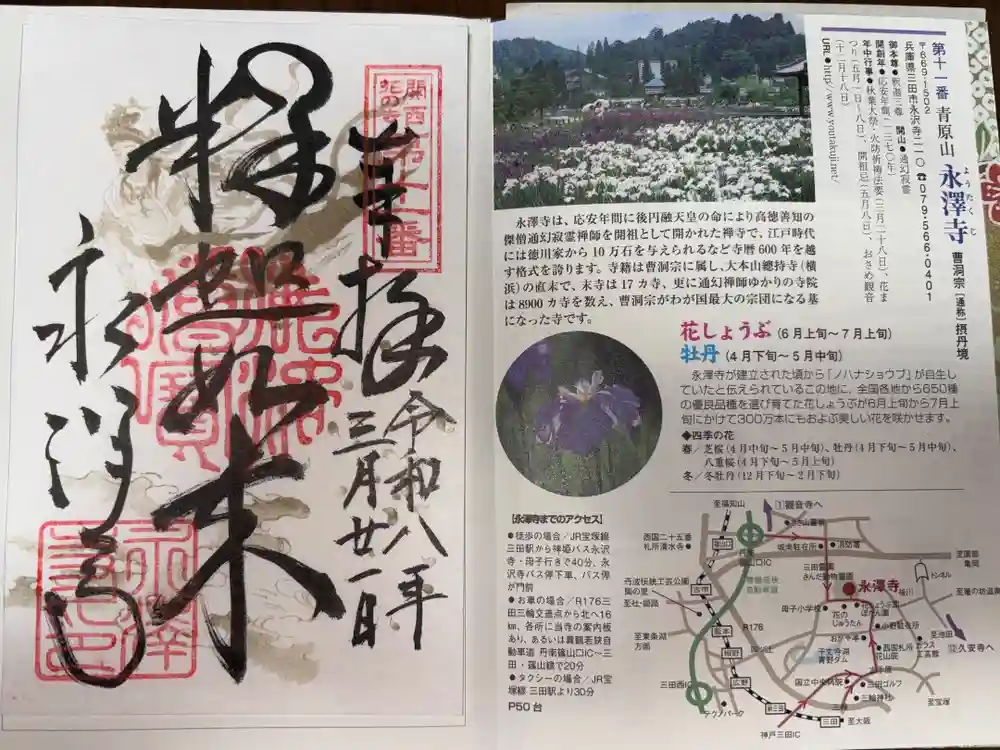 奉拝
令和八年
三月廿一日
釋迦如来
永澤寺
関西
花の寺
第十一番
第十一番 青原山 永澤寺 曹洞宗 〔通称〕摂丹境
ようたくじ
〒669-1502
兵庫県三田市永沢寺二一〇 ☎079・566・0401
御本尊●釈迦三尊 開山●通幻寂霊
開創年●応安年間(一三七〇年)
年中行事●秋葉大祭・火防祈祷法要(三月二十八日)、花ま
つり(五月一日〜八日)、開祖忌(五月八日)、おさめ観音
(十二月十八日)
URL●http://www.youtakuji.net/
永澤寺は、応安年間に後円融天皇の命により高徳善知の
傑僧通幻寂霊禅師を開祖として開かれた禅寺で、江戸時代
には徳川家から10万石を与えられるなど寺暦600年を越
す格式を誇ります。寺籍は曹洞宗に属し、大本山總持寺(横
浜)の直末で、末寺は17カ寺、更に通幻禅師ゆかりの寺院
は8900カ寺を数え、曹洞宗がわが国最大の宗団になる基
になった寺です。
花しょうぶ(6月上旬〜7月上旬)
牡丹(4月下旬〜5月中旬)
永澤寺が建立された頃から「ノハナショウブ」が自生し
ていたと伝えられているこの地に、全国各地から650種
の優良品種を選び育てた花しょうぶが6月上旬から7月上
旬にかけて300万本にもおよぶ美しい花を咲かせます。
◆四季の花
春/芝桜(4月中旬〜5月中旬)、牡丹(4月下旬〜5月中旬)、
八重桜(4月下旬〜5月上旬)
冬/冬牡丹(12月下旬〜2月下旬)
【永澤寺までのアクセス】
●徒歩の場合/JR宝塚線
三田駅から神姫バス永沢
寺・母子行きで40分、永
沢寺バス停下車、バス停
が門前
●お車の場合/R176三
田三輪交差点から北へ16
km、各所に当寺の案内板
あり、あるいは舞鶴若狭自
動車道 丹南篠山口IC〜三
田・篠山線で20分
●タクシーの場合/JR宝
塚線 三田駅より30分
P50台
至福知山
①観音寺へ
西国二十五番
札所清水寺
篠山口
城東駐在所
消防署
至園部
亀岡
三田霊園
さんだ動物霊園
丹波伝統工芸公園
陶の里
至社・姫路
古市
永澤寺
トンネル
母子小学校
花の
じゅうたん
花しょうぶ園
ぼたん園
小野駐在所
至東条湖
方面
R176
至池田
⑫久安寺へ
相野
広野
千丈寺湖
青野ダム
西国札所
花山院
ガラス
工芸館
三田西IC
国立中央病院
三田ゴルフ
三輪神社
テクノパーク
新三田
三輪
三田
至大阪
至宝塚
神戸三田IC